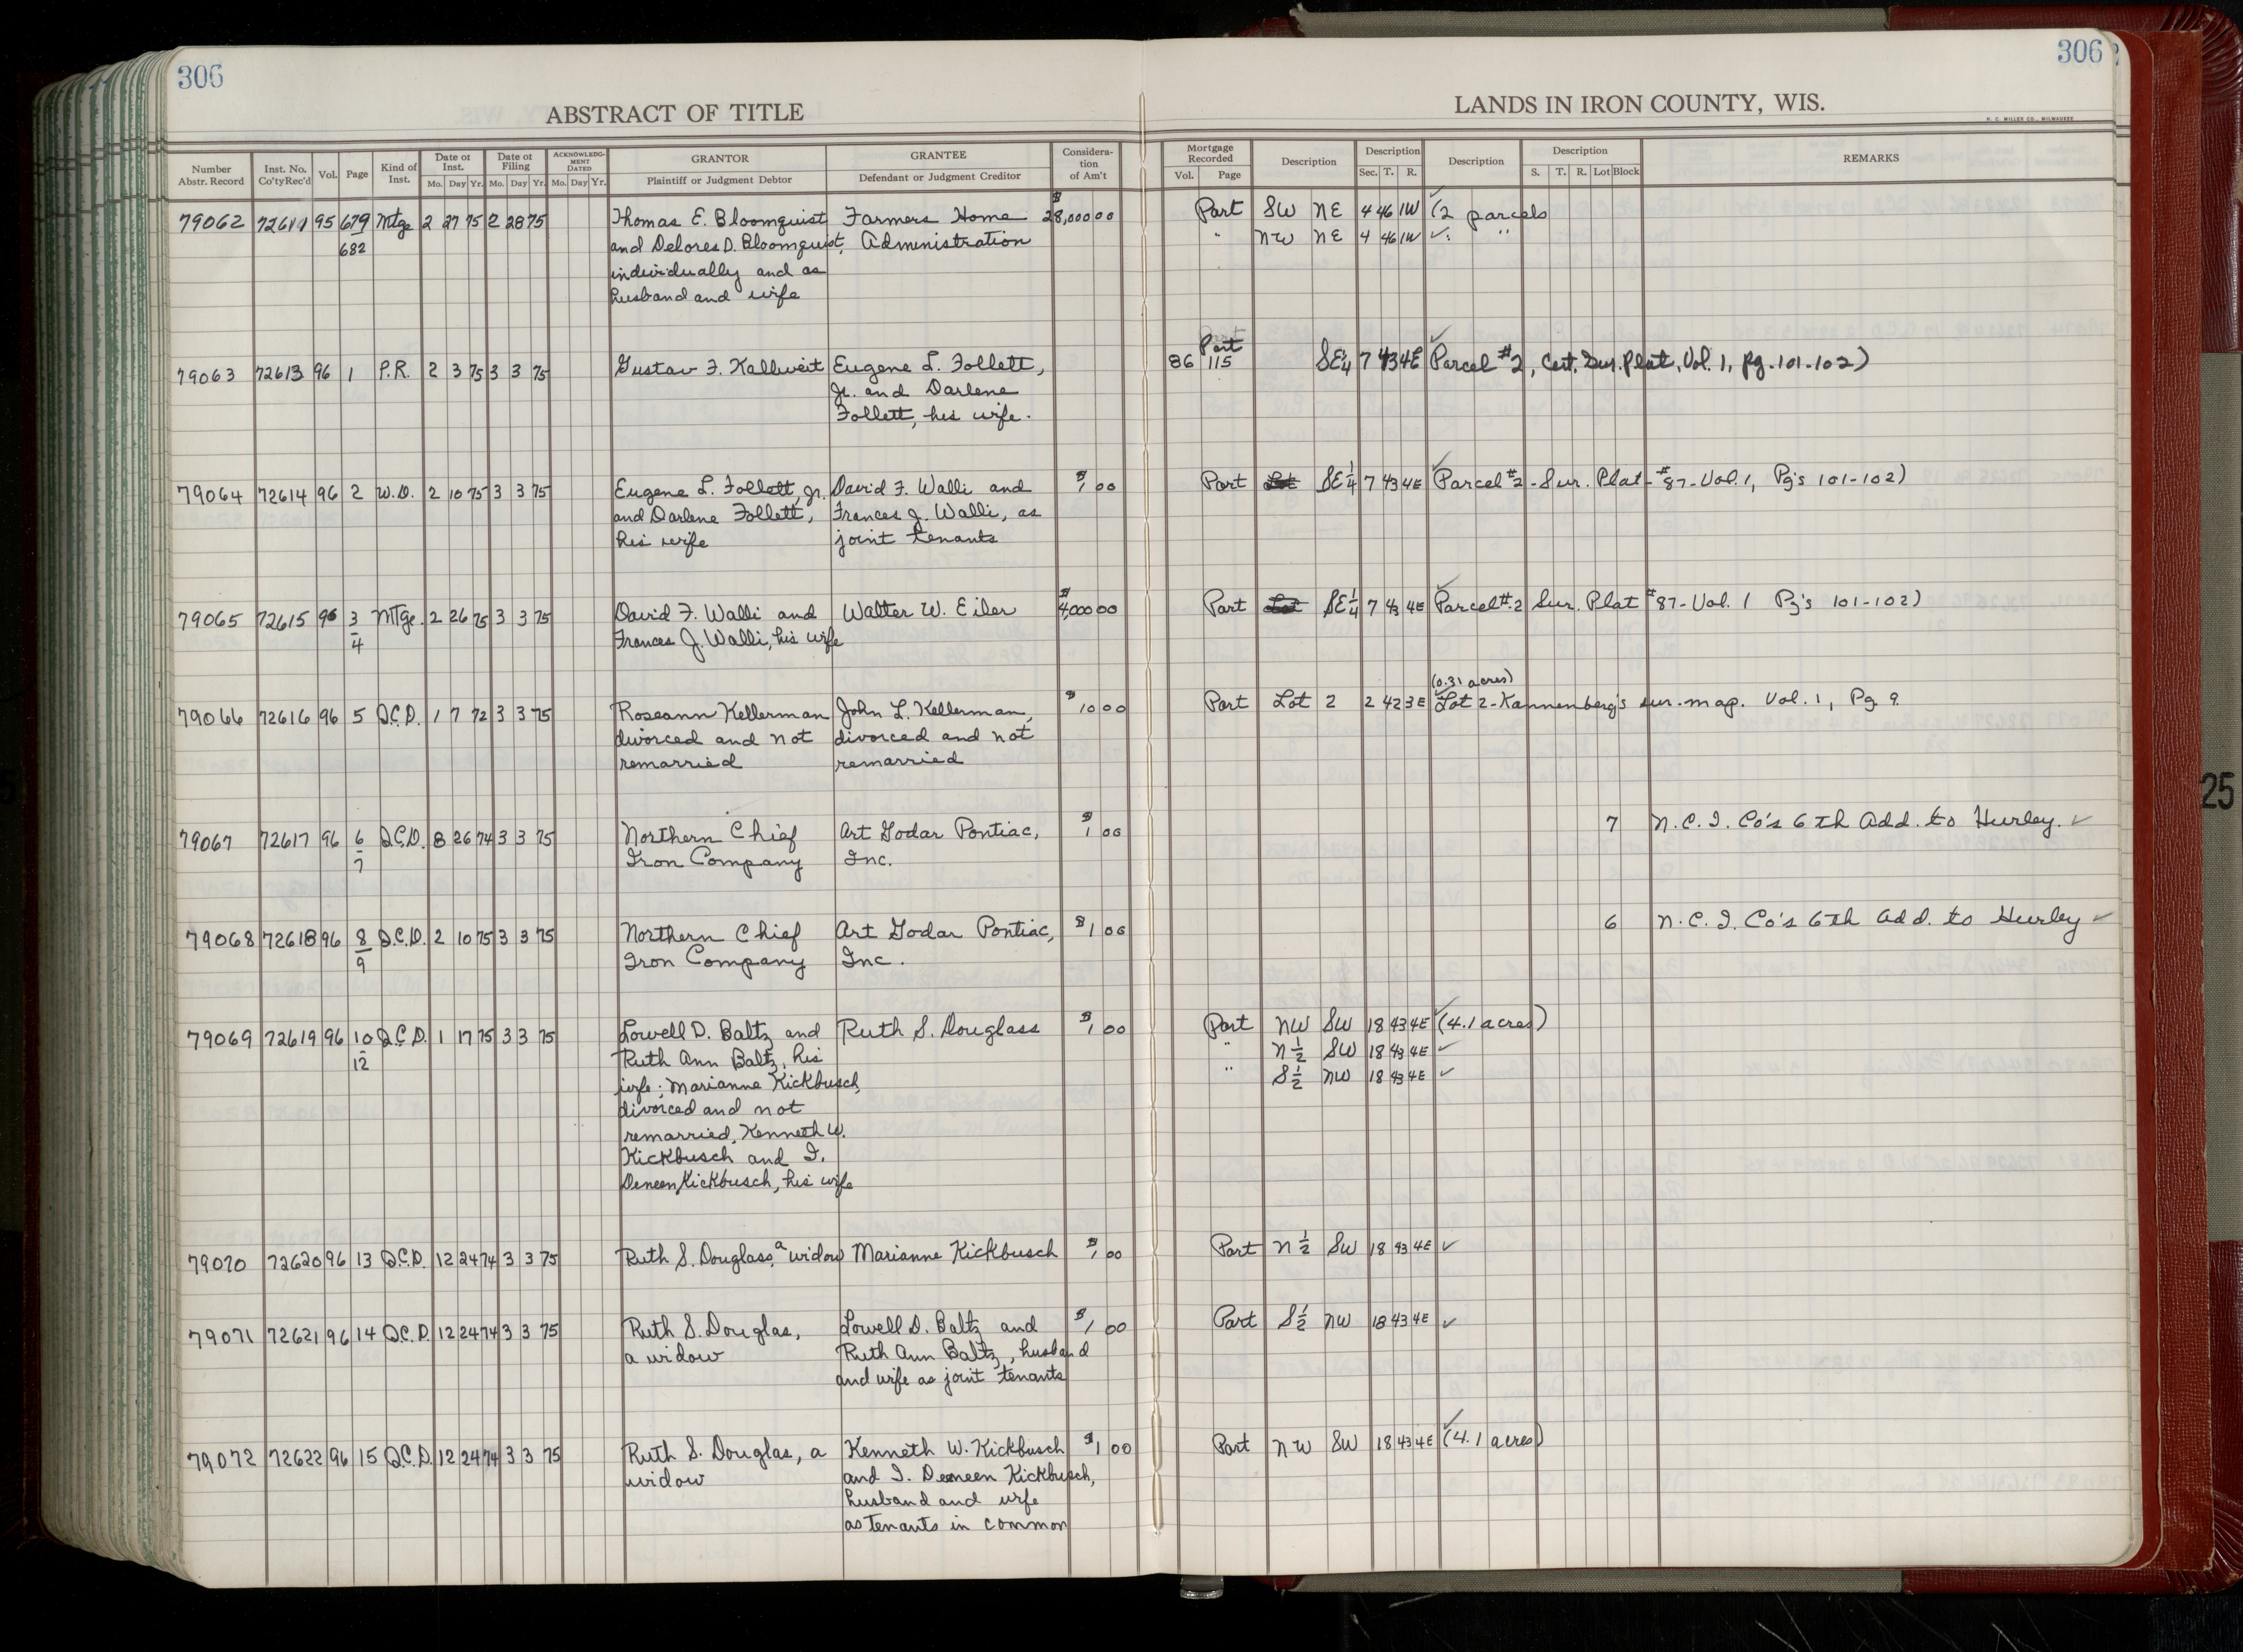 306
306
ABSTRACT OF TITLE
LANDS IN IRON COUNTY, WIS.
H. C. MILLER CO., MILWAUKEE
Number Abstr. Record Inst. No. Co'ty Rec'd Vol. Page Kind of Inst. Date of Inst. Mo. Day Yr. Date of Filing Mo. Day Yr. ACKNOWLEDG-MENT DATED Mo. Day Yr. GRANTOR Plaintiff or Judgment Debtor GRANTEE Defendant or Judgment Creditor Considera-tion of Am't Mortgage Recorded Vol. Page Description Description Sec. T. R. Description Description S. T. R. Lot Block REMARKS
79062 72611 95 679 Mtge 2 27 75 2 28 75 Thomas E. Bloomquist Farmers Home $28,000 00 Part SW NE 4 46 1W (2 parcels
682 and Delores D. Bloomquist, Administration " NW NE 4 46 1W ✓: "
individually and as
husband and wife
79063 72613 96 1 P.R. 2 3 75 3 3 75 Gustav F. Kallweit Eugene L. Follett, 86 115 Part SE¼ 7 43 4E Parcel #2, Cert. Sur. Plat, Vol. 1, pg. 101-102)
Jr. and Darlene
Follett, his wife.
79064 72614 96 2 W.D. 2 10 75 3 3 75 Eugene L. Follett, Jr. David F. Walli and $1 00 Part SE¼ 7 43 4E Parcel #2 - Sur. Plat - #87 - Vol. 1, Pg's 101-102)
and Darlene Follett, Frances J. Walli, as
his wife joint tenants
79065 72615 96 3 Mtge. 2 26 75 3 3 75 David F. Walli and Walter W. Eiler $4,000 00 Part SE¼ 7 43 4E Parcel #2 Sur. Plat #87 - Vol. 1 Pg's 101-102)
4 Frances J. Walli, his wife
(0.31 acres)
79066 72616 96 5 Q.C.D. 1 7 72 3 3 75 Roseann Kellerman John L. Kellerman, $10 00 Part Lot 2 2 42 3E Lot 2 - Kannenberg's sur. map. Vol. 1, Pg 9.
divorced and not divorced and not
remarried remarried
79067 72617 96 6 Q.C.D. 8 26 74 3 3 75 Northern Chief Art Godar Pontiac, $1 00 7 N.C.I. Co's 6th Add. to Hurley. ✓
7 Iron Company Inc.
79068 72618 96 8 Q.C.D. 2 10 75 3 3 75 Northern Chief Art Godar Pontiac, $1 00 6 N.C.I. Co's 6th Add. to Hurley ✓
9 Iron Company Inc.
79069 72619 96 10 Q.C.D. 1 17 75 3 3 75 Lowell D. Baltz and Ruth S. Douglass $1 00 Part NW SW 18 43 4E ✓ (4.1 acres)
12 Ruth Ann Baltz, his " N½ SW 18 43 4E ✓
wife; Marianne Kickbusch, " S½ NW 18 43 4E ✓
divorced and not
remarried, Kenneth W.
Kickbusch and I.
Deneen Kickbusch, his wife
79070 72620 96 13 Q.C.D. 12 24 74 3 3 75 Ruth S. Douglass, a widow Marianne Kickbusch $1 00 Part N½ SW 18 43 4E ✓
79071 72621 96 14 Q.C.D. 12 24 74 3 3 75 Ruth S. Douglas, Lowell D. Baltz and $1 00 Part S½ NW 18 43 4E ✓
a widow Ruth Ann Baltz, husband
and wife as joint tenants
79072 72622 96 15 Q.C.D. 12 24 74 3 3 75 Ruth S. Douglas, a Kenneth W. Kickbusch $1 00 Part NW SW 18 43 4E ✓ (4.1 acres)
widow and I. Deneen Kickbusch,
husband and wife
as tenants in common
25